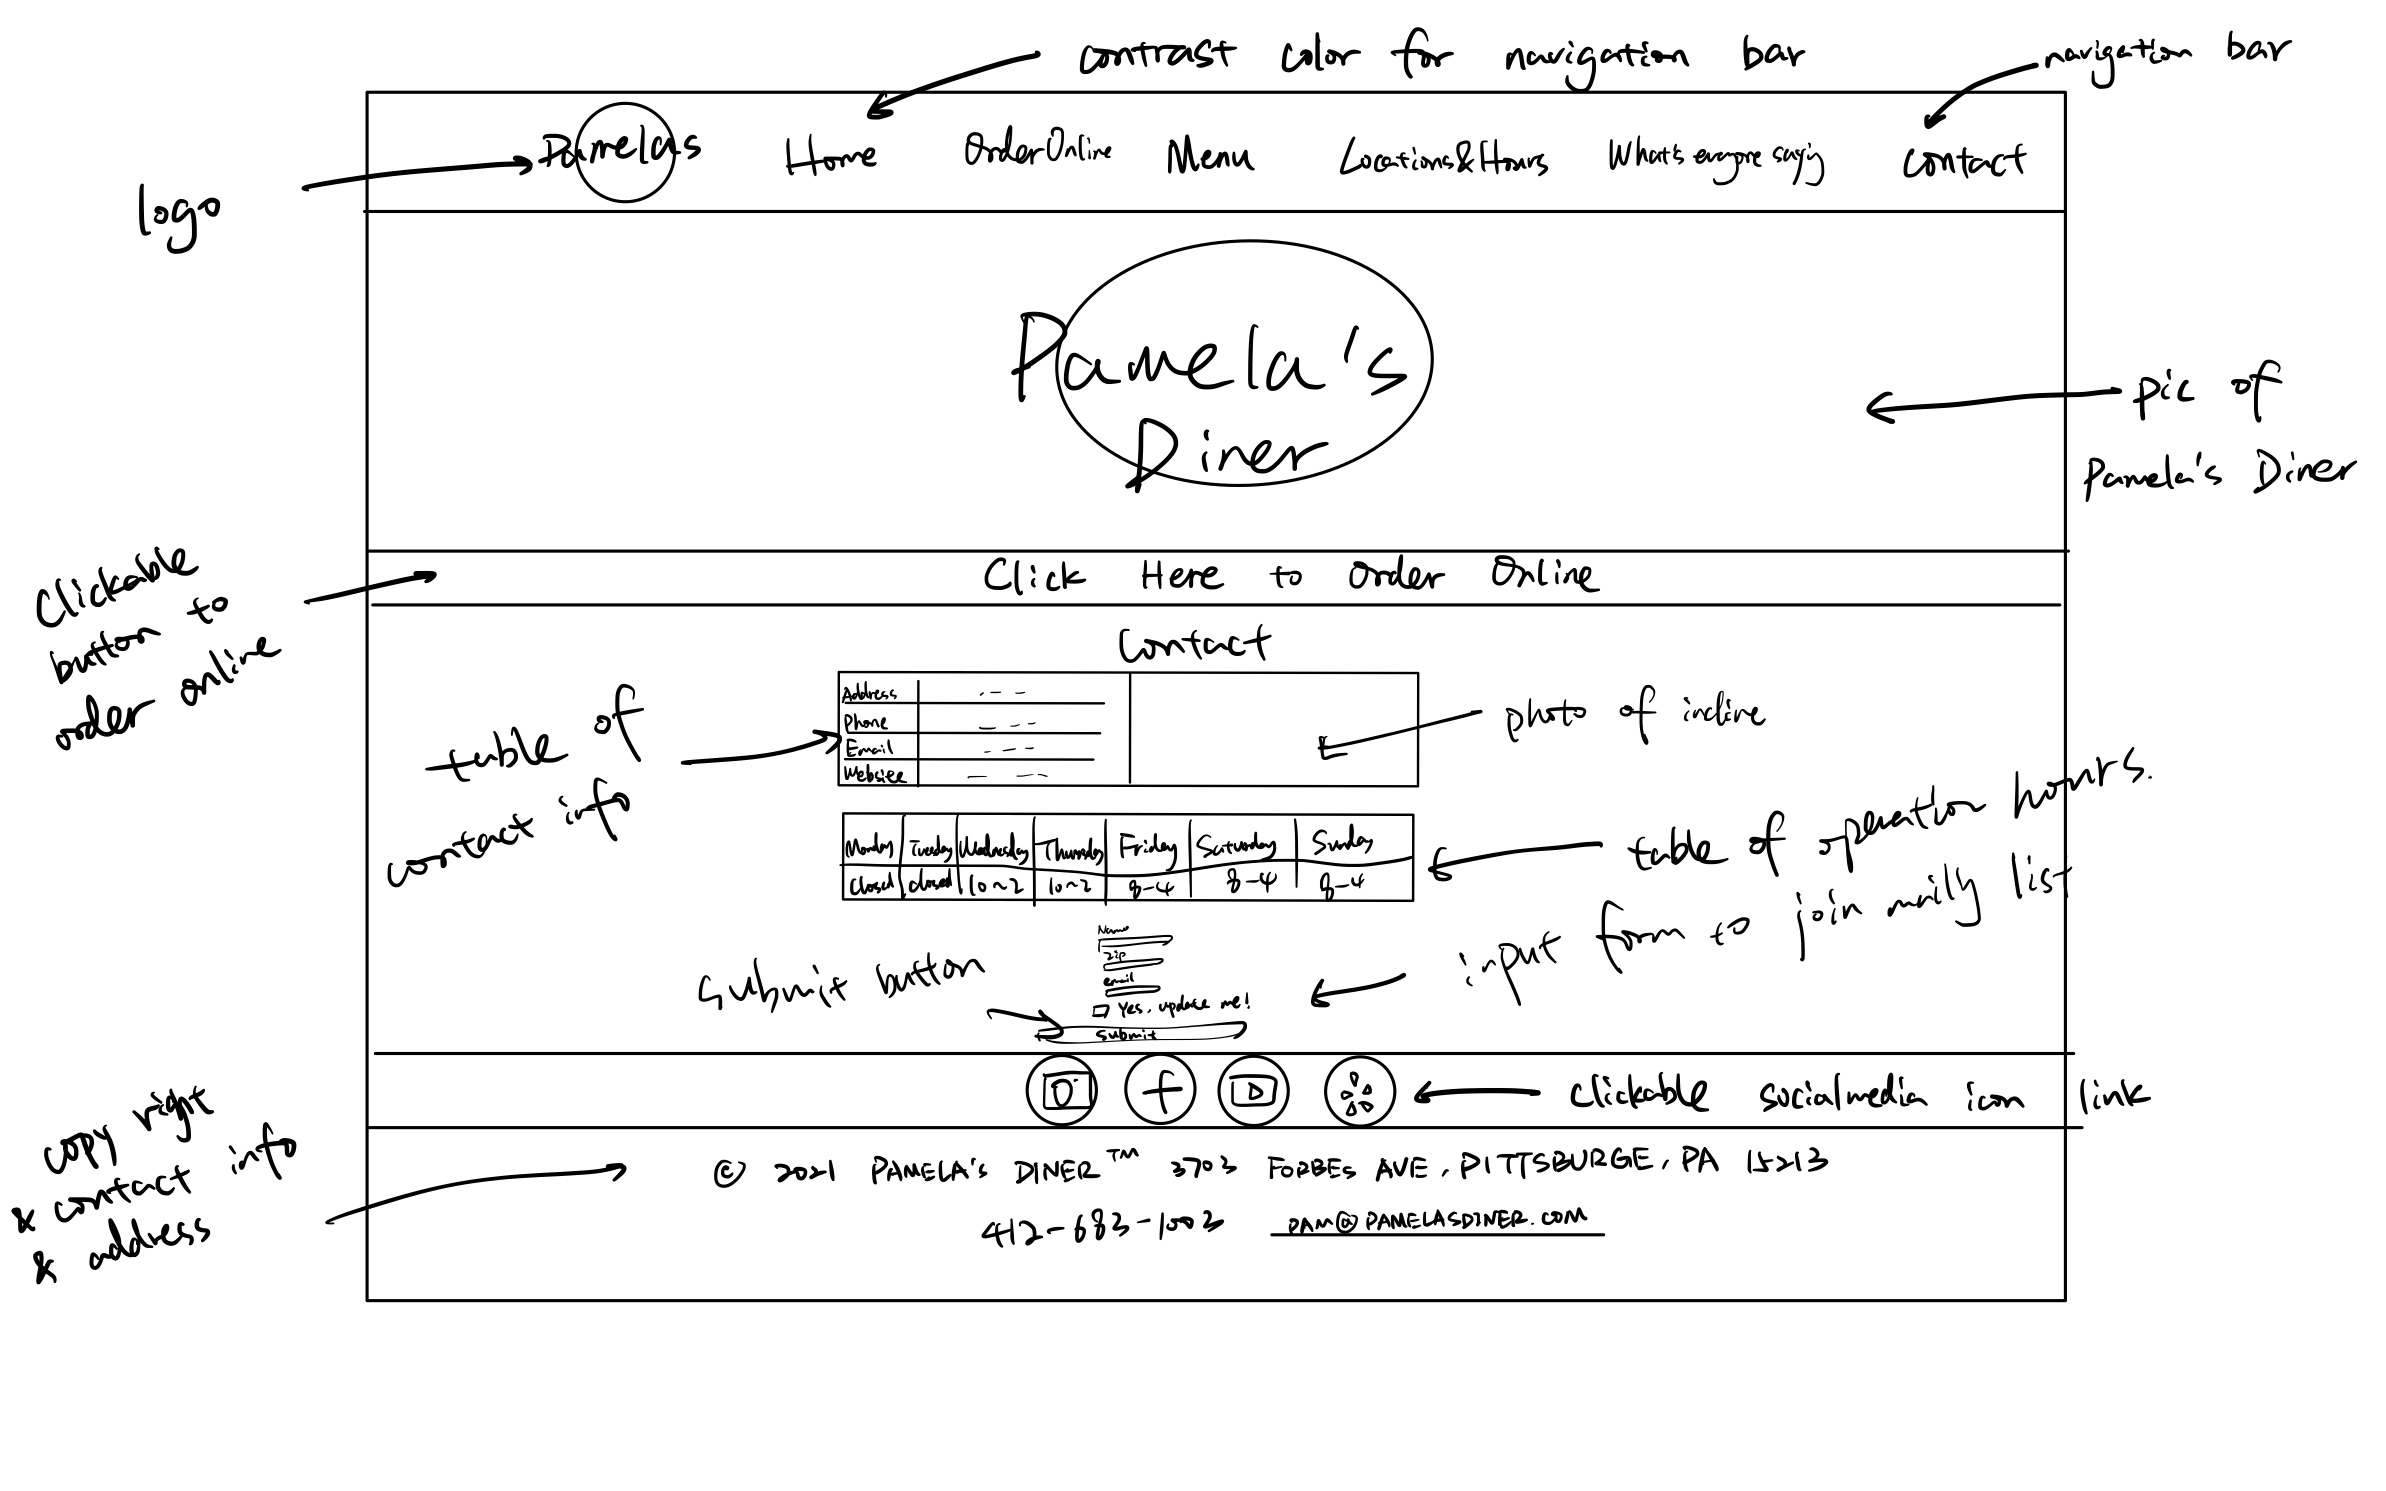 contrast color for navigation bar
navigation bar
logo
Pamelas Home Order Online Menu Locations&Hours What's everyone saying contact
Pamela's
Diner
pic of
Pamela's Diner
Clickable
button to
order online
Click Here to Order Online
Contact
table of
contact info
Address
Phone
Email
Website
photo of incline
Monday Tuesday Wednesday Thursday Friday Saturday Sunday
Closed closed 10~2 10~2 8-4 8-4 8-4
table of operation hours.
input from to join maily list
Name
zip
email
Yes, update me!
submit
Submit button
clickable socialmedia icon link
copy right
& contact info
& address
© 2021 PAMELA's DINER™ 3703 FORBES AVE, PITTSBURGE, PA 15213
412-683-1003 PAM@PAMELASDINER.COM